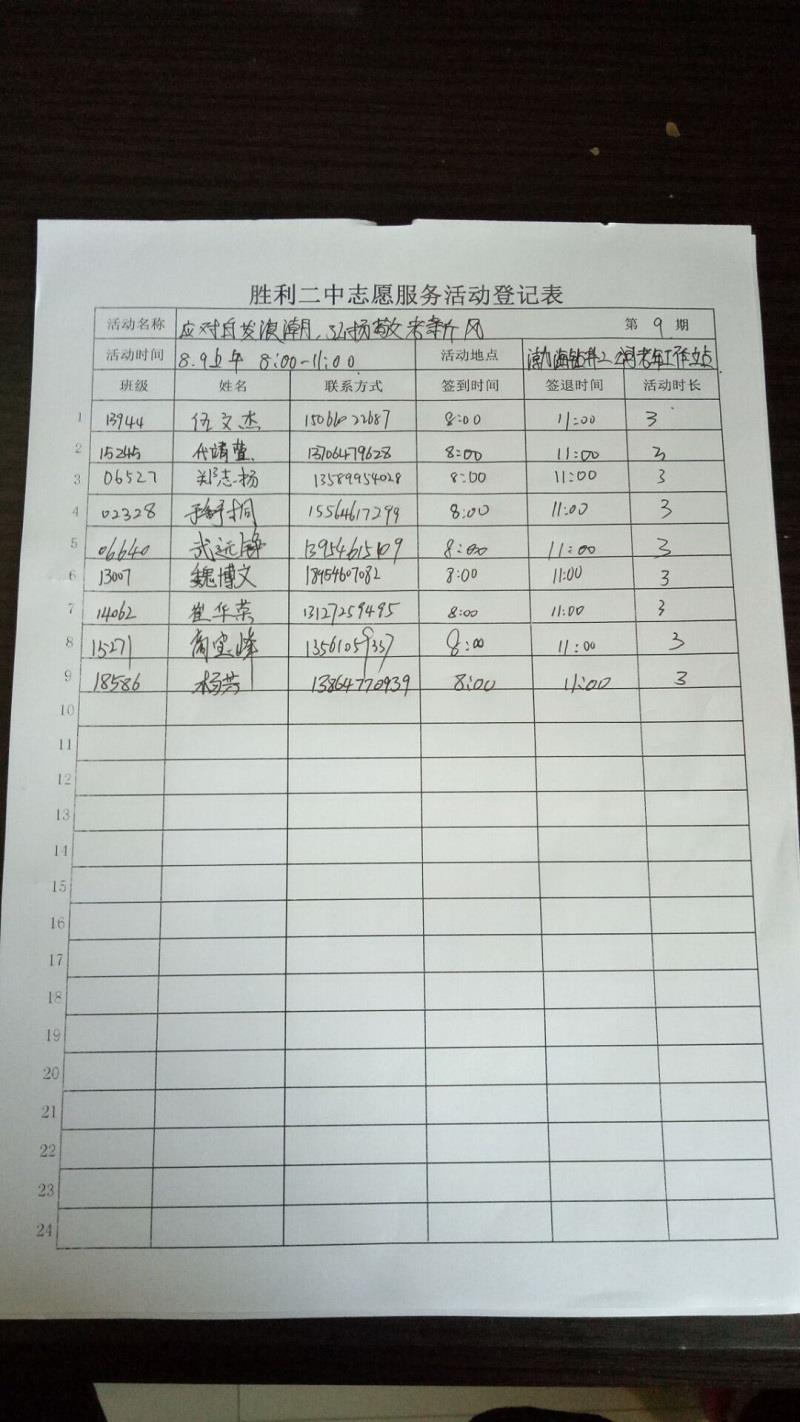 胜利二中志愿服务活动登记表
活动名称 应对白发浪潮,弘扬敬老新风 第 9 期
活动时间 8.9上午 8:00-11:00 活动地点 渤海钻井二公司老年工作站点
班级 姓名 联系方式 签到时间 签退时间 活动时长
1 13944 伍文杰 15066022687 8:00 11:00 3
2 15245 代靖萱 13706479628 8:00 11:00 3
3 06527 郑志扬 13589954028 8:00 11:00 3
4 02328 15564617299 8:00 11:00 3
5 06640 武远 13954615109 8:00 11:00 3
6 13007 魏博文 18954607082 8:00 11:00 3
7 14062 崔华荣 13127259495 8:00 11:00 3
8 15271 13561059337 8:00 11:00 3
9 18586 杨芸 13864770939 8:00 11:00 3
10
11
12
13
14
15
16
17
18
19
20
21
22
23
24